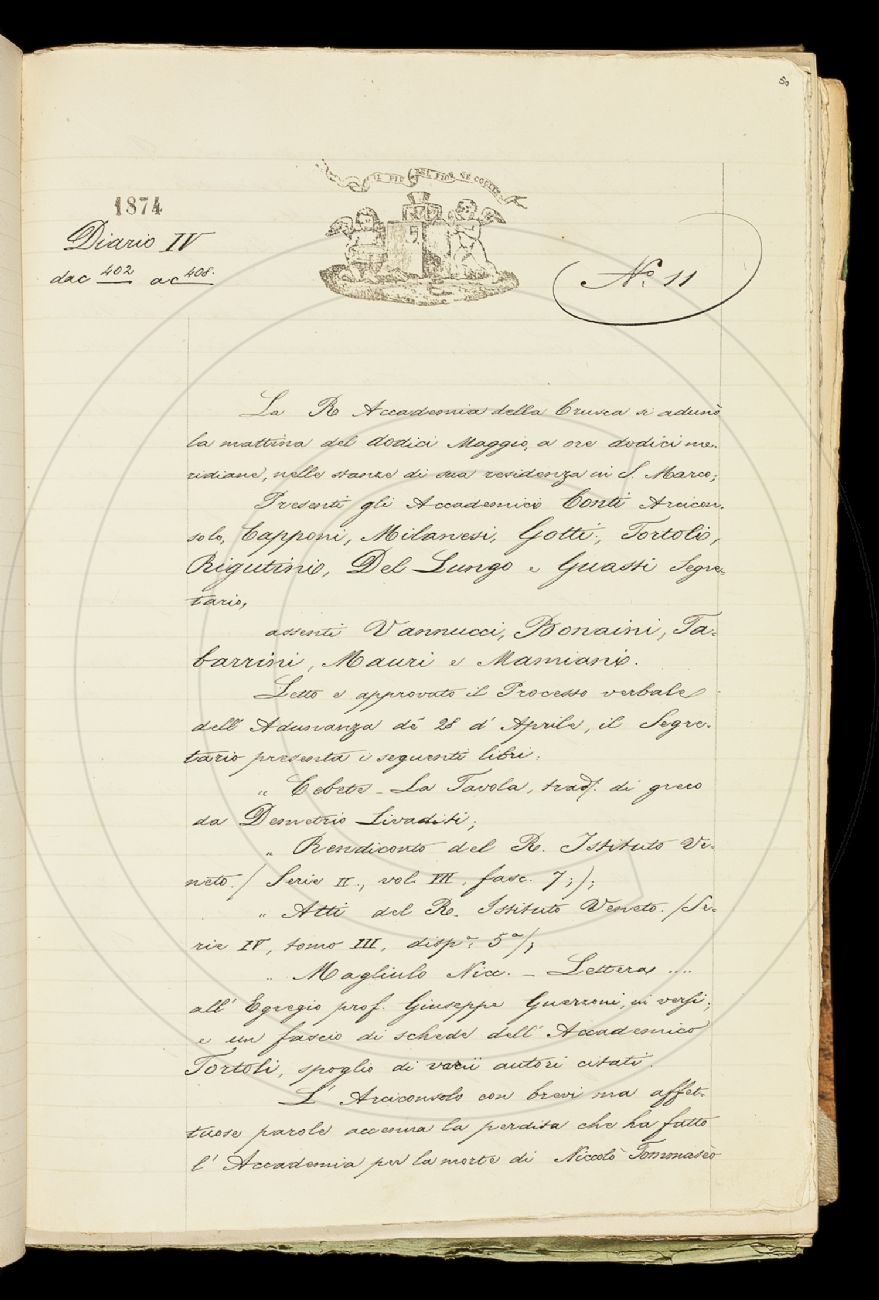 50
IL PIÙ BEL FIOR NE COGLIE
1874
Diario IV
da c 402 a c 408.
N.º 11
La R Accademia della Crusca si adunò
la mattina del dodici Maggio, a ore dodici me-
ridiane, nelle stanze di sua residenza in S. Marco;
Presenti gli Accademici Conti Arcicon-
solo, Capponi, Milanesi, Gotti, Tortoli,
Rigutini, Del Lungo e Guasti Segre-
tario,
assenti Vannucci, Bonaini, Ta-
barrini, Mauri e Mamiani.
Letto e approvato il Processo verbale
dell'Adunanza de' 28 d'Aprile, il Segre-
tario presenta i seguenti libri:
" Cebete - La Tavola, trad. di greco
da Demetrio Livaditi;
" Rendiconto del R. Istituto Ve-
neto. / Serie II., vol. III. fasc. 7; /;
" Atti del R. Istituto Veneto. / Se-
rie IV, tomo III, disp.ª 5ª /;
" Magliulo Nicc. - Lettera ....
all'Egregio prof. Giuseppe Guerzoni, in versi;
e un fascio di schede dell'Accademico
Tortoli, spoglio di varii autori citati.
L'Arciconsolo con brevi ma affet-
tuose parole accenna la perdita che ha fatto
l'Accademia per la morte di Niccolò Tommasèo